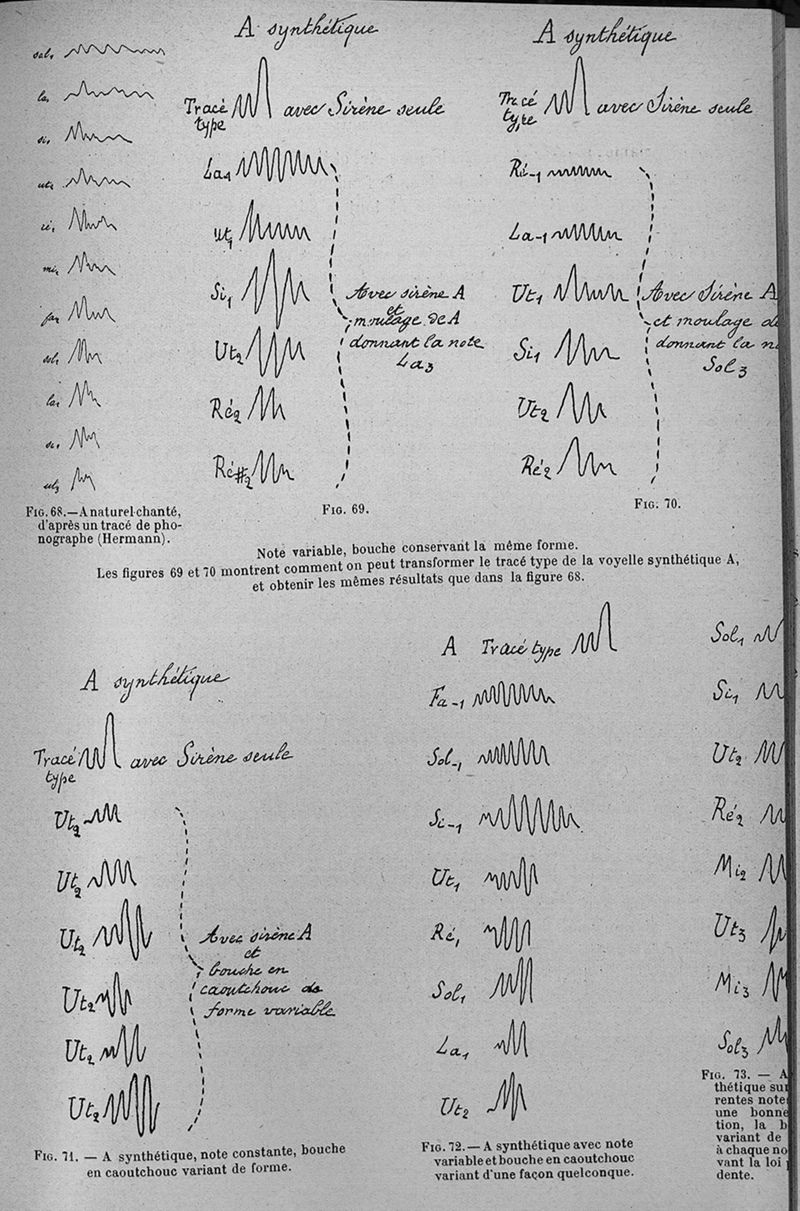 A synthétique
A synthétique
sol₁
la₁
si₁
ut₂
mi₂
sol₂
Tracé type avec Sirène seule
La₁
ut₁
Si₁
Ut₂
Ré₂
Ré#₂
Avec sirène A
et
moulage de A
donnant la note
La₃
Tracé type avec Sirène seule
Ré₋₁
La₋₁
Ut₁
Si₁
Ut₂
Ré₂
Avec Sirène A
et moulage de
donnant la no
Sol₃
FIG. 68.—A naturel chanté,
d'après un tracé de pho-
nographe (Hermann).
FIG. 69.
FIG. 70.
Note variable, bouche conservant la même forme.
Les figures 69 et 70 montrent comment on peut transformer le tracé type de la voyelle synthétique A,
et obtenir les mêmes résultats que dans la figure 68.
A synthétique
Tracé type avec Sirène seule
Ut₂
Ut₂
Ut₂
Ut₂
Ut₂
Ut₂
Avec sirène A
et
bouche en
caoutchouc de
forme variable
FIG. 71. — A synthétique, note constante, bouche
en caoutchouc variant de forme.
A Tracé type
Fa₋₁
Sol₋₁
Si₋₁
Ut₁
Ré₁
Sol₁
La₁
Ut₂
FIG. 72.— A synthétique avec note
variable et bouche en caoutchouc
variant d'une façon quelconque.
Sol₁
Si₁
Ut₂
Ré₂
Mi₂
Ut₃
Mi₃
Sol₃
FIG. 73. — A
thétique sur
rentes notes
une bonne
tion, la b
variant de
à chaque no
vant la loi p
dente.